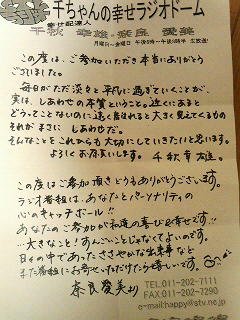 千ちゃんの幸せラジオドーム
幸せ配達人
千秋 幸雄・奈良 愛美
月曜日～金曜日
この度は、ご参加いただき本当にありがとう
ございました。
毎日がただ淡々と平凡に過ぎていくことが、
実は、しあわせの本質ということ。近くにあると
どうってことないのに遠く離れると大きく見えてくるもの
それがまさに しあわせだ。
そんなことをこれからも大切にしていきたいと思います。
よろしくお願いします。 千秋幸雄
この度はご参加頂きどうもありがとうございます。
ラジオ番組は、あなたとパーソナリティの
心のキャッチボール!!
あなたのご参加が私達の喜び&幸せです!!
…大きなこと!すんごいことじゃなくてよいのです。
日々の中であったささやかな出来事など
また番組にお寄せいただけたら嬉しいです。
奈良愛美より
TEL.011-202-7111
FAX.011-202-7290
e-mail:happy@stv.ne.jp